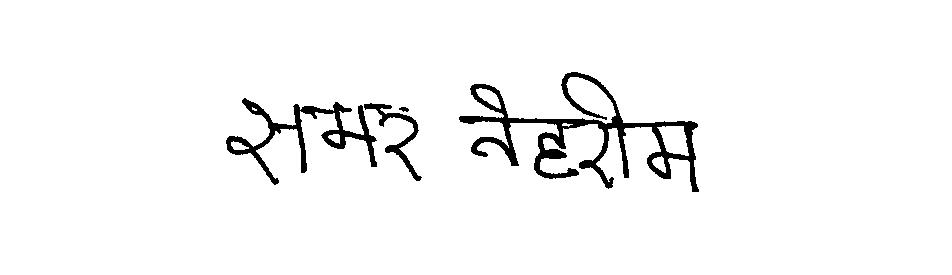 समर नेहरीम